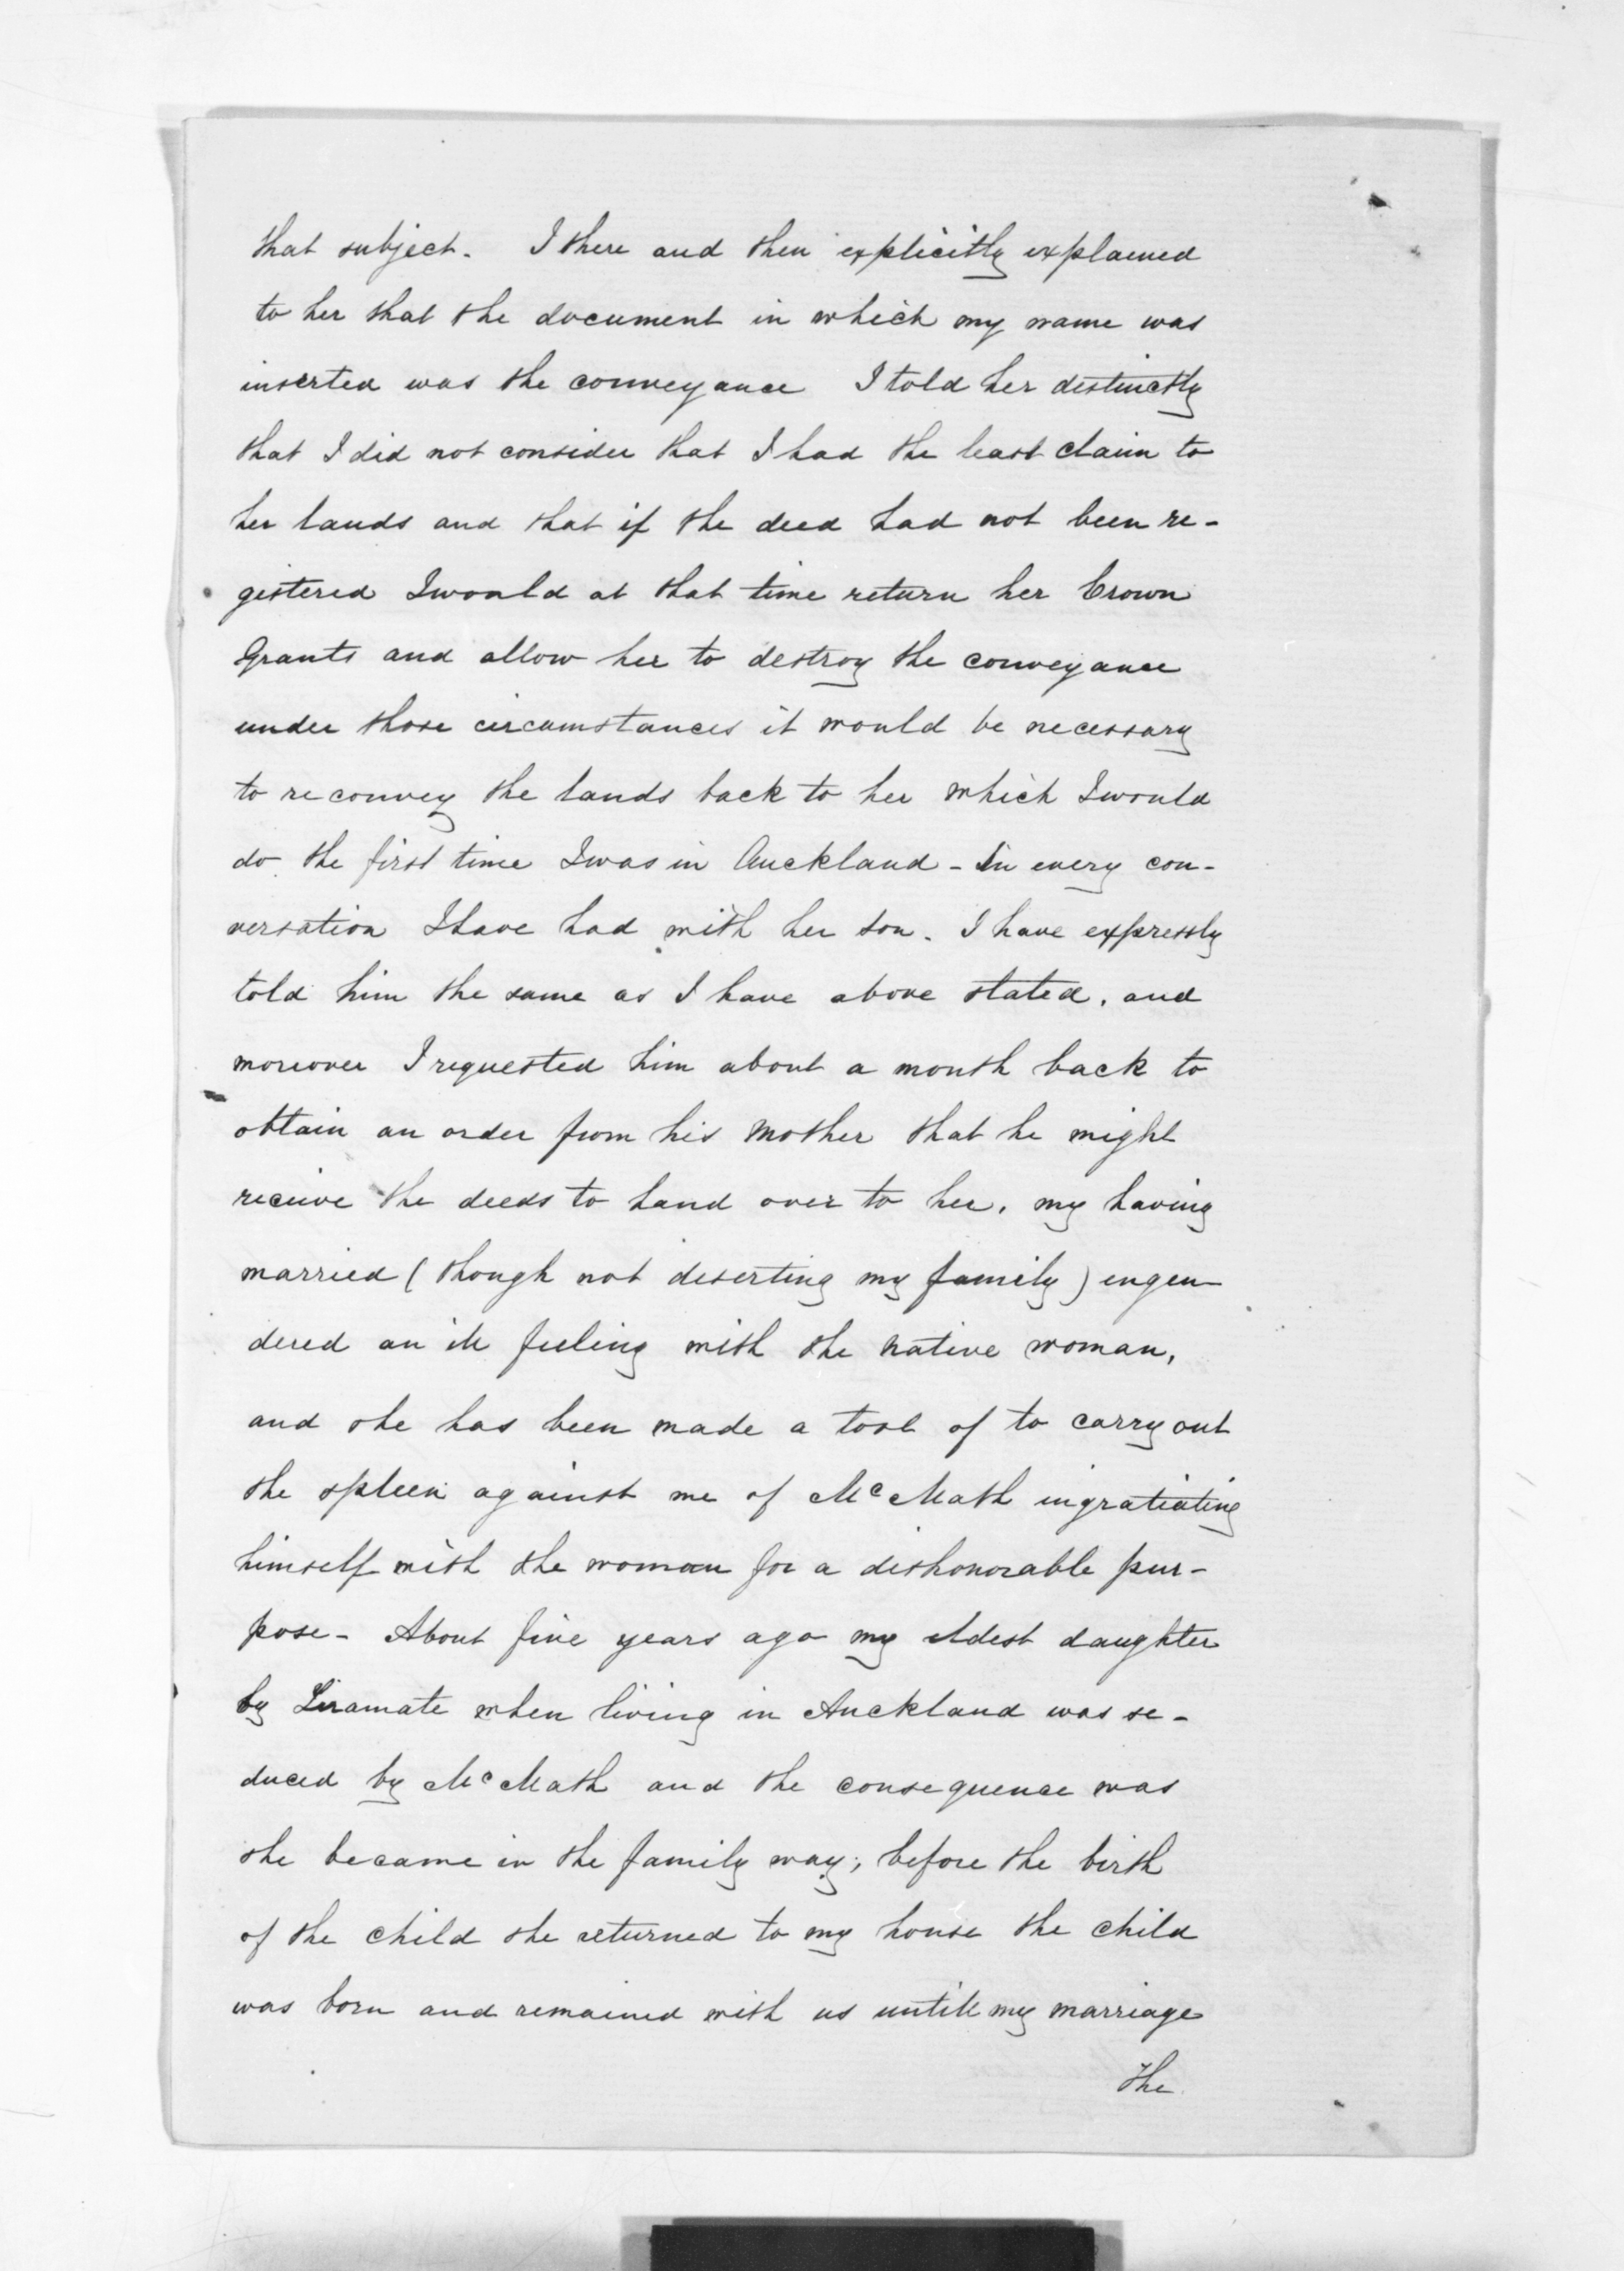 that subject. I there and then explicitly explained
to her that the document in which my name was
inserted was the conveyance I told her distinctly
that I did not consider that I had the least claim to
her lands and that if the deed had not been re-
gistered I would at that time return her Crown
Grants and allow her to destroy the conveyance
under those circumstances it would be necessary
to reconvey the lands back to her which I would
do the first time I was in Auckland - In every con-
versation I have had with her son. I have expressly
told him the same as I have above stated, and
moreover I requested him about a month back to
obtain an order from his Mother that he might
receive the deeds to hand over to her, my having
married (though not deserting my family) engen-
dered an ill feeling with the native woman,
and she has been made a tool of to carry out
the spleen against me of McMath ingratiating
himself with the woman for a dishonorable pur-
pose - About five years ago my eldest daughter
by when living in Auckland was se-
duced by McMath and the consequence was
she became in the family way; before the birth
of the child she returned to my house the child
was born and remained with us untill my marriage
The